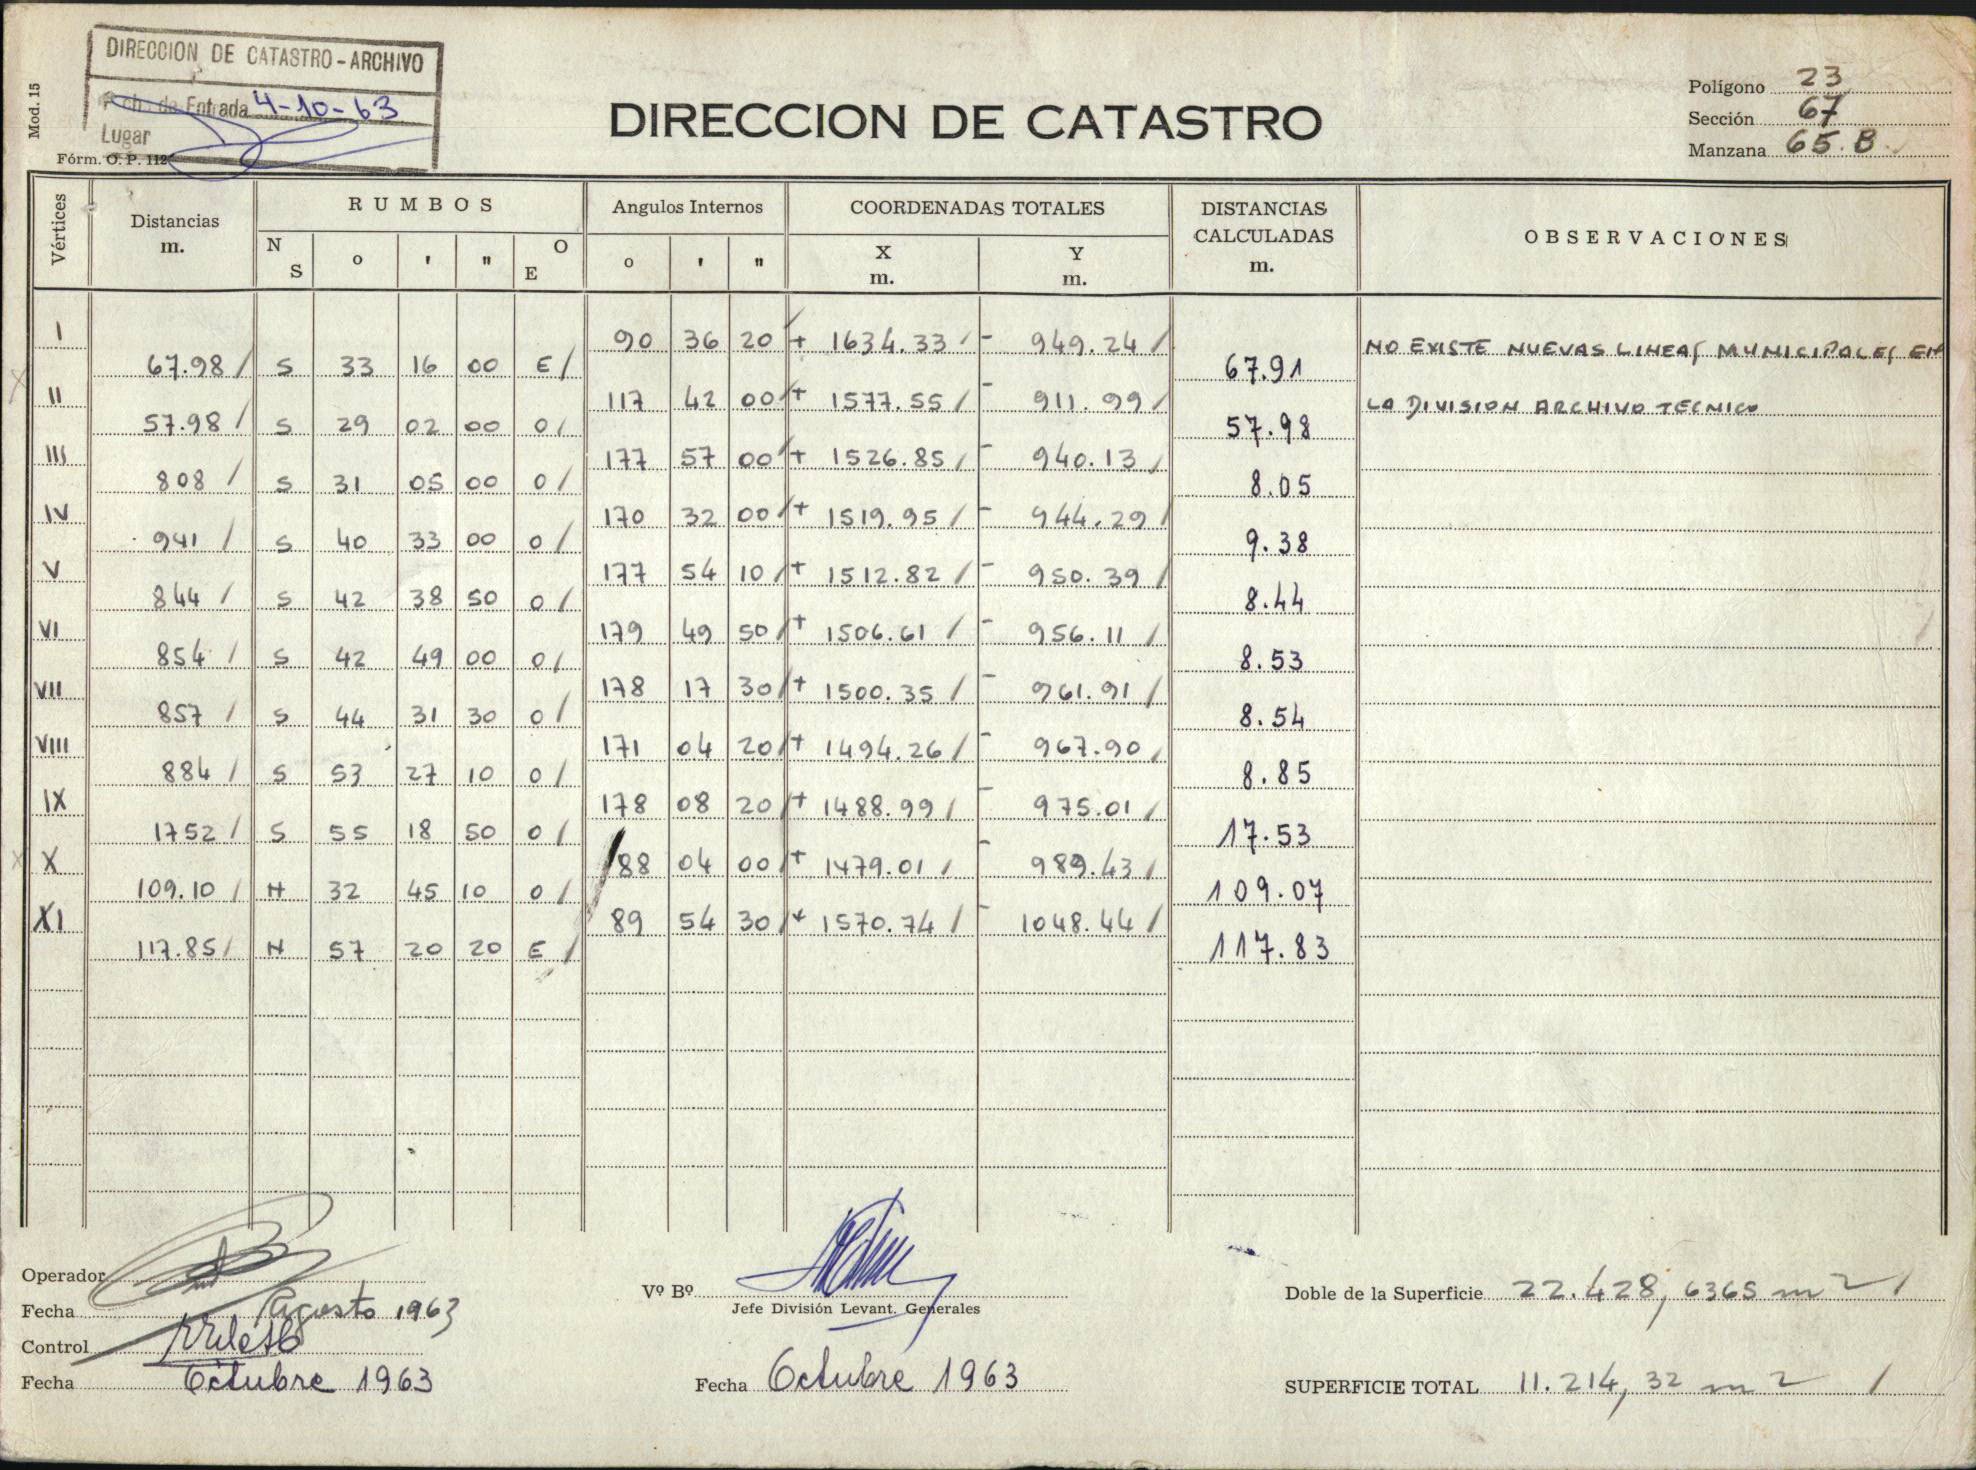 DIRECCION DE CATASTRO - ARCHIVO
Entrada 4-10-63
Lugar
Mod. 15
Fórm. O. P. 112
DIRECCION DE CATASTRO
Polígono 23
Sección 67
Manzana 65.B
Vértices Distancias m. RUMBOS N S o ' " O E Angulos Internos o ' " COORDENADAS TOTALES X m. Y m. DISTANCIAS CALCULADAS m. OBSERVACIONES
I 90 36 20 + 1634.33 - 949.24 NO EXISTE NUEVAS LINEAS MUNICIPALES EN
67.98 S 33 16 00 E 67.91
II 117 42 00 + 1577.55 - 911.99 LA DIVISION ARCHIVO TECNICO
57.98 S 29 02 00 O 57.98
III 177 57 00 + 1526.85 - 940.13
808 S 31 05 00 O 8.05
IV 170 32 00 + 1519.95 - 944.29
941 S 40 33 00 O 9.38
V 177 54 10 + 1512.82 - 950.39
844 S 42 38 50 O 8.44
VI 179 49 50 + 1506.61 - 956.11
854 S 42 49 00 O 8.53
VII 178 17 30 + 1500.35 - 961.91
857 S 44 31 30 O 8.54
VIII 171 04 20 + 1494.26 - 967.90
884 S 53 27 10 O 8.85
IX 178 08 20 + 1488.99 - 975.01
1752 S 55 18 50 O 17.53
X 88 04 00 + 1479.01 - 989.43
109.10 N 32 45 10 O 109.07
XI 89 54 30 + 1570.74 - 1048.44
117.85 N 57 20 20 E 117.83
Operador
Fecha Agosto 1963
Control
Fecha Octubre 1963
Vº Bº
Jefe División Levant. Generales
Fecha Octubre 1963
Doble de la Superficie 22.428,6365 m2
SUPERFICIE TOTAL 11.214,32 m2